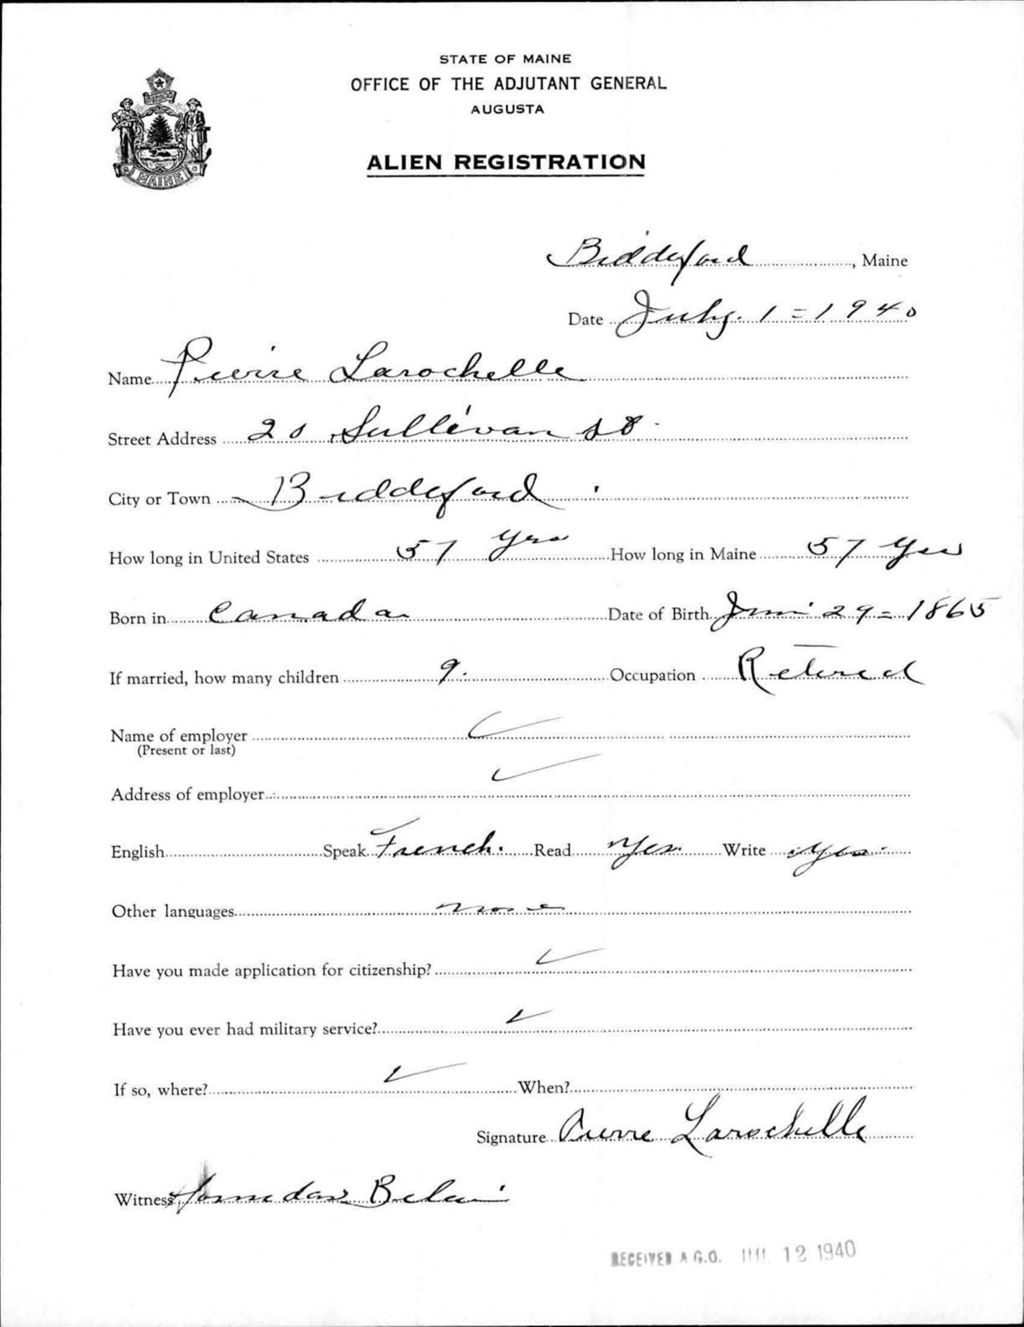 STATE OF MAINE
OFFICE OF THE ADJUTANT GENERAL
AUGUSTA
ALIEN REGISTRATION
MAINE
Biddeford, Maine
Date July. 1 = 1940
Name Pierre Larochelle
Street Address 20 Sullivan St.
City or Town Biddeford
How long in United States 57 yrs How long in Maine 57 yrs
Born in Canada Date of Birth 29 = 1865
If married, how many children 9. Occupation Retired
Name of employer
(Present or last)
Address of employer
English Speak French. Read Yes. Write Yes.
Other languages none
Have you made application for citizenship?
Have you ever had military service?
If so, where? When?
Signature Pierre Larochelle
Witness
RECEIVED A.G.O. JUL 12 1940